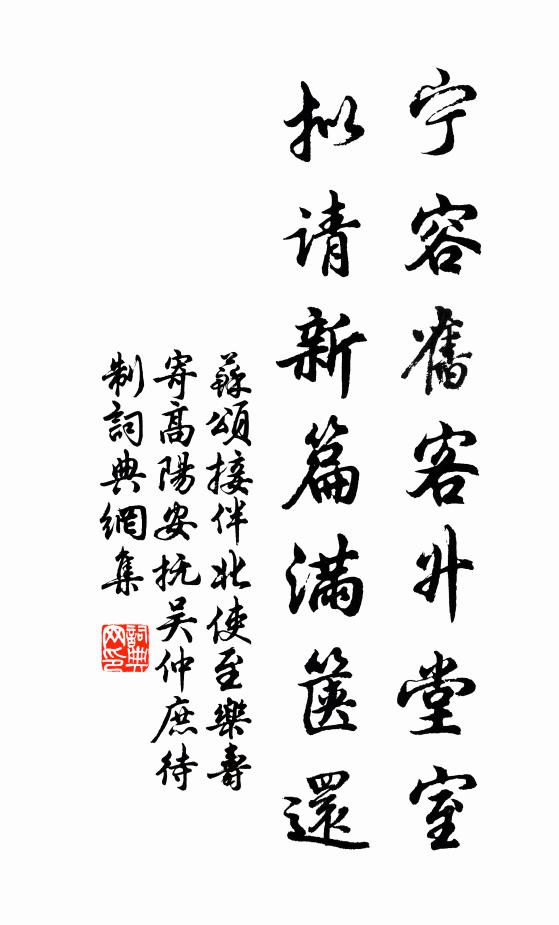 宁容舊客升堂室
拟请新篇满箧還
蘇頌接伴北使至樂壽
寄高陽安抚吴仲庶待
制詞典網集
詞典网印